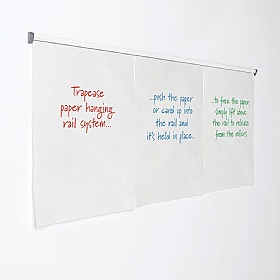 Trapease
paper hanging
rail system...
...push the paper
or card up into
the rail and
it's held in place...
...to free the paper,
simply lift above
the rail to release
from the rollers